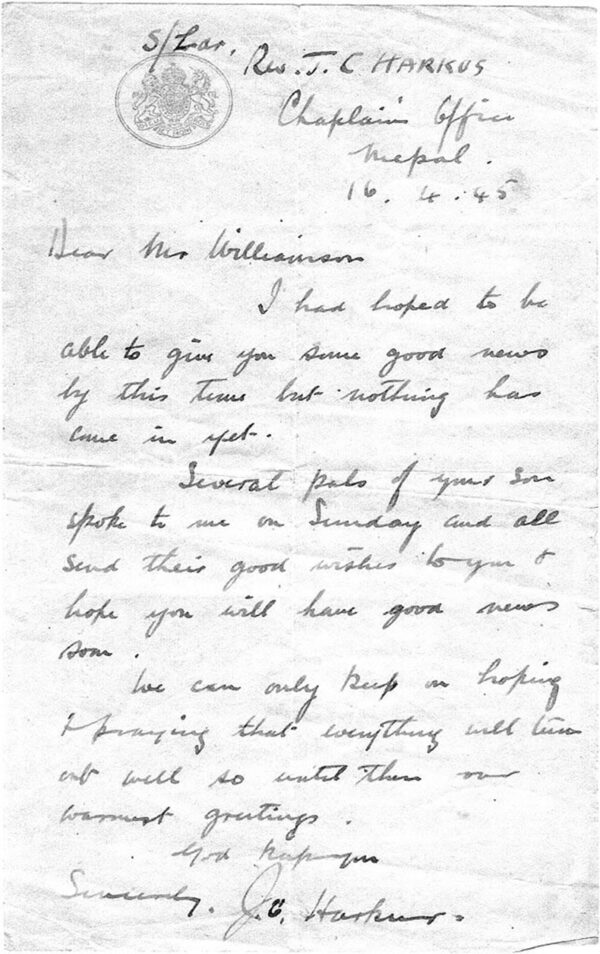 S/Ldr. Rev. J. C HARKUS
Chaplain's Office
Mepal.
16. 4. 45
Dear Mr Williamson
I had hoped to be
able to give you some good news
by this time but nothing has
come in yet.
Several pals of your son
spoke to me on Sunday and all
send their good wishes to you &
hope you will have good news
soon.
We can only keep on hoping
& praying that everything will turn
out well so until then our
warmest greetings.
God keep you
Sincerely. J.C. Harkus.